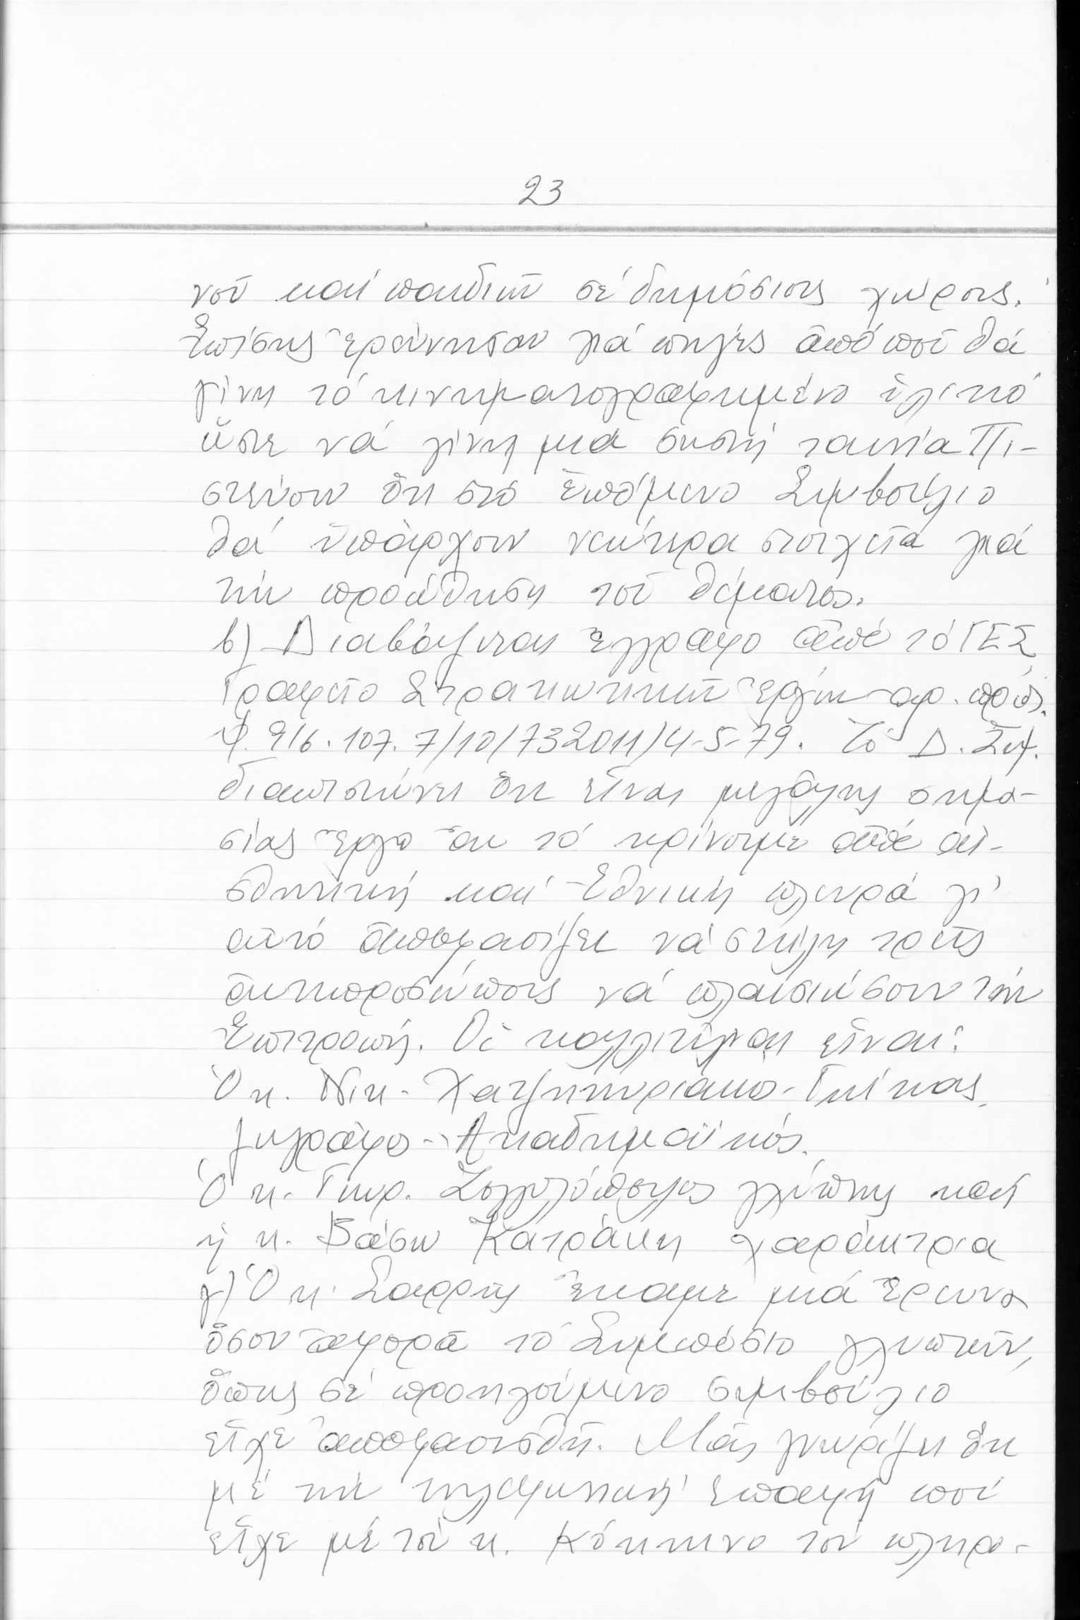 23
νοῦ καί παιδιῶν σέ δημόσιους χώρους.
Ἐπίσης ἐρεύνησαν γιά πηγές ἀπό ποῦ θά
γίνη τό κινηματογραφημένο ὑλικό
ὥστε νά γίνη μιά σωστή ταινία Πι-
στεύουν ὅτι στό ἑπόμενο Συμβούλιο
θά ὑπάρχουν νεώτερα στοιχεῖα γιά
τήν προώθηση τοῦ θέματος.
β) Διαβάζεται ἔγγραφο ἀπό τό ΓΕΣ
Γραφεῖο Στρατιωτικῶν Ἔργων αρ. πρωτ.
Φ. 916.107.7/10/732011/4-5-79. Τό Δ. Συμ.
διαπιστώνει ὅτι εἶναι μεγάλης σημα-
σίας ἔργο ἄν τό κρίνουμε ἀπό αἰ-
σθητική καί Ἐθνική πλευρά γι'
αὐτό ἀποφασίζει νά στείλη τρεῖς
ἀντιπροσώπους νά πλαισιώσουν τήν
Ἐπιτροπή. Οἱ καλλιτέχναι εἶναι:
Ὁ κ. Νικ. Χατζηκυριάκο-Γκίκας,
ζωγράφος-Ἀκαδημαϊκός.
Ὁ κ. Γεωρ. Ζογγολόπουλος γλύπτης καί
ἡ κ. Βάσω Κατράκη χαράκτρια
γ) Ὁ κ. Σαρρῆς ἔκαμε μιά ἔρευνα
ὅσον ἀφορᾶ τό Συμπόσιο γλυπτῶν,
ὅπως σέ προηγούμενο συμβούλιο
εἶχε ἀποφασισθῆ. Μᾶς γνωρίζει ὅτι
μέ τήν τηλεφωνική ἐπαφή πού
εἶχε μέ τόν κ. Κόκκινο τόν πληρο-